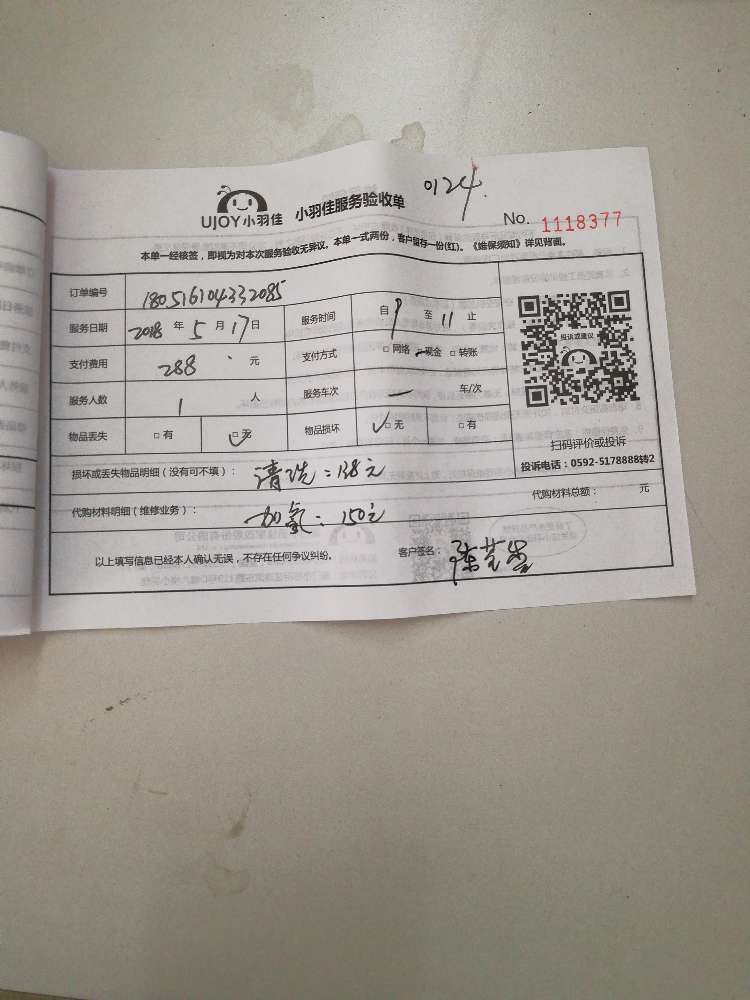 UJOY小羽佳 小羽佳服务验收单 0124
No. 1118377
本单一经核签，即视为对本次服务验收无异议。本单一式两份，客户留存一份(红)。《维保须知》详见背面。
订单编号 180516104332085
服务日期 2018 年 5 月 17 日 服务时间 自 9 至 11 止
支付费用 288 元 支付方式 □ 网络 □ 现金 □ 转账
服务人数 1 人 服务车次 一 车/次
物品丢失 □ 有 □ 无 物品损坏 □ 无 □ 有
投诉或建议
扫码评价或投诉
投诉电话：0592-5178888转2
损坏或丢失物品明细（没有可不填）： 清洗：138元
代购材料明细（维修业务）： 加氟：150元 代购材料总额： 元
以上填写信息已经本人确认无误，不存在任何争议纠纷。 客户签名：